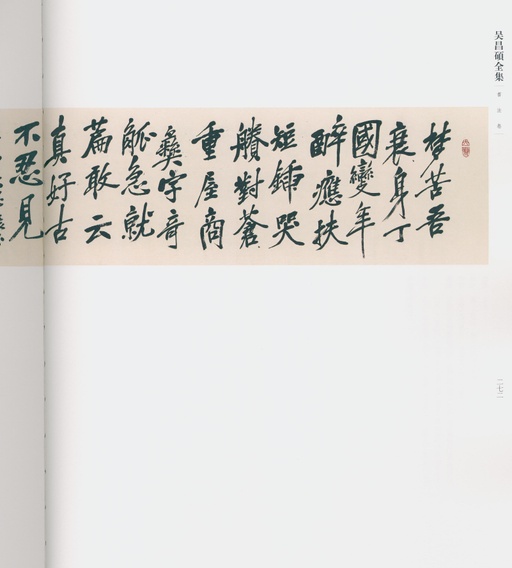 吴昌碩全集
書法卷一
二七二
梦苦吾
衰身丁
國變年
醉應扶
短鍤哭
賸對蒼
重屋商
彝字奇
觚急就
篇敢云
真好古
不忍見